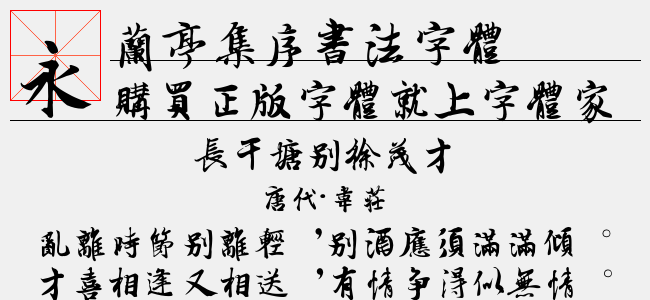 永
蘭亭集序書法字體
購買正版字體就上字體家
長干塘别徐茂才
唐代·韋莊
亂離時節别離輕，别酒應須滿滿傾。
才喜相逢又相送，有情爭得似無情。